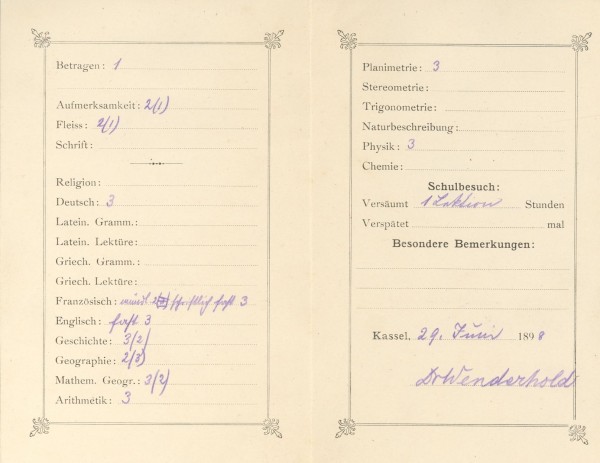 Betragen: 1
Aufmerksamkeit: 2(1)
Fleiss: 2(1)
Schrift:
Religion:
Deutsch: 3
Latein. Gramm.:
Latein. Lektüre:
Griech. Gramm.:
Griech. Lektüre:
Französisch: schriftlich fast 3
Englisch: fast 3
Geschichte: 3(2)
Geographie: 2(3)
Mathem. Geogr.: 3(2)
Arithmetik: 3
Planimetrie: 3
Stereometrie:
Trigonometrie:
Naturbeschreibung:
Physik: 3
Chemie:
Schulbesuch:
Versäumt 1 Lektion Stunden
Verspätet mal
Besondere Bemerkungen:
Kassel, 29. Juni 1898
Dr Wenderhold